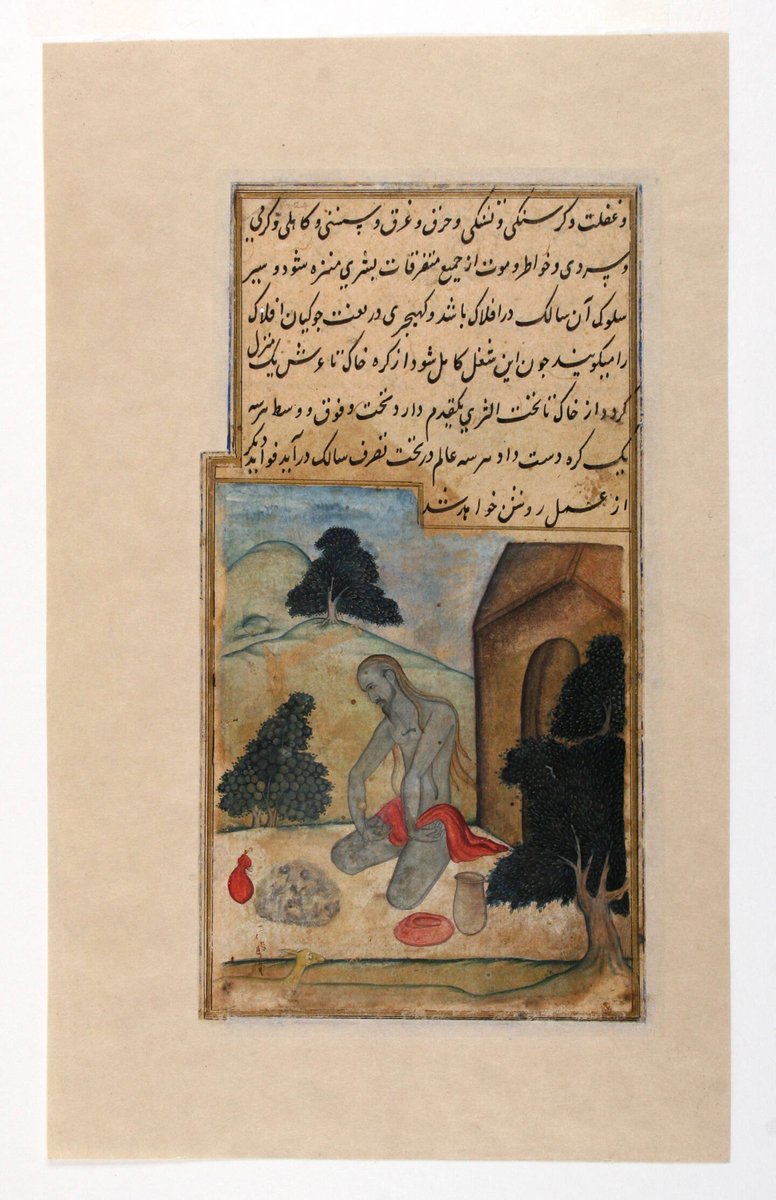 و غفلت و گرسنگی و تشنگی و حرق و غرق و سستی و کاهلی و گرمی
و سردی و خواطر و موت از جمیع متفرقات بشری منزه شود و سیر
سلوک آن سالک در افلاک باشد و کهیچری در لغت جوکیان افلاک
را میگویند چون این شغل کامل شود از کره خاک تا عرش یک منزل
گردد از خاک تا تحت الثری یکقدم دارد تحت و فوق و وسط هر سه
یک کره دست داد هر سه عالم در تحت تصرف سالک درآید فواید دیگر
از عمل روشن خواهد شد